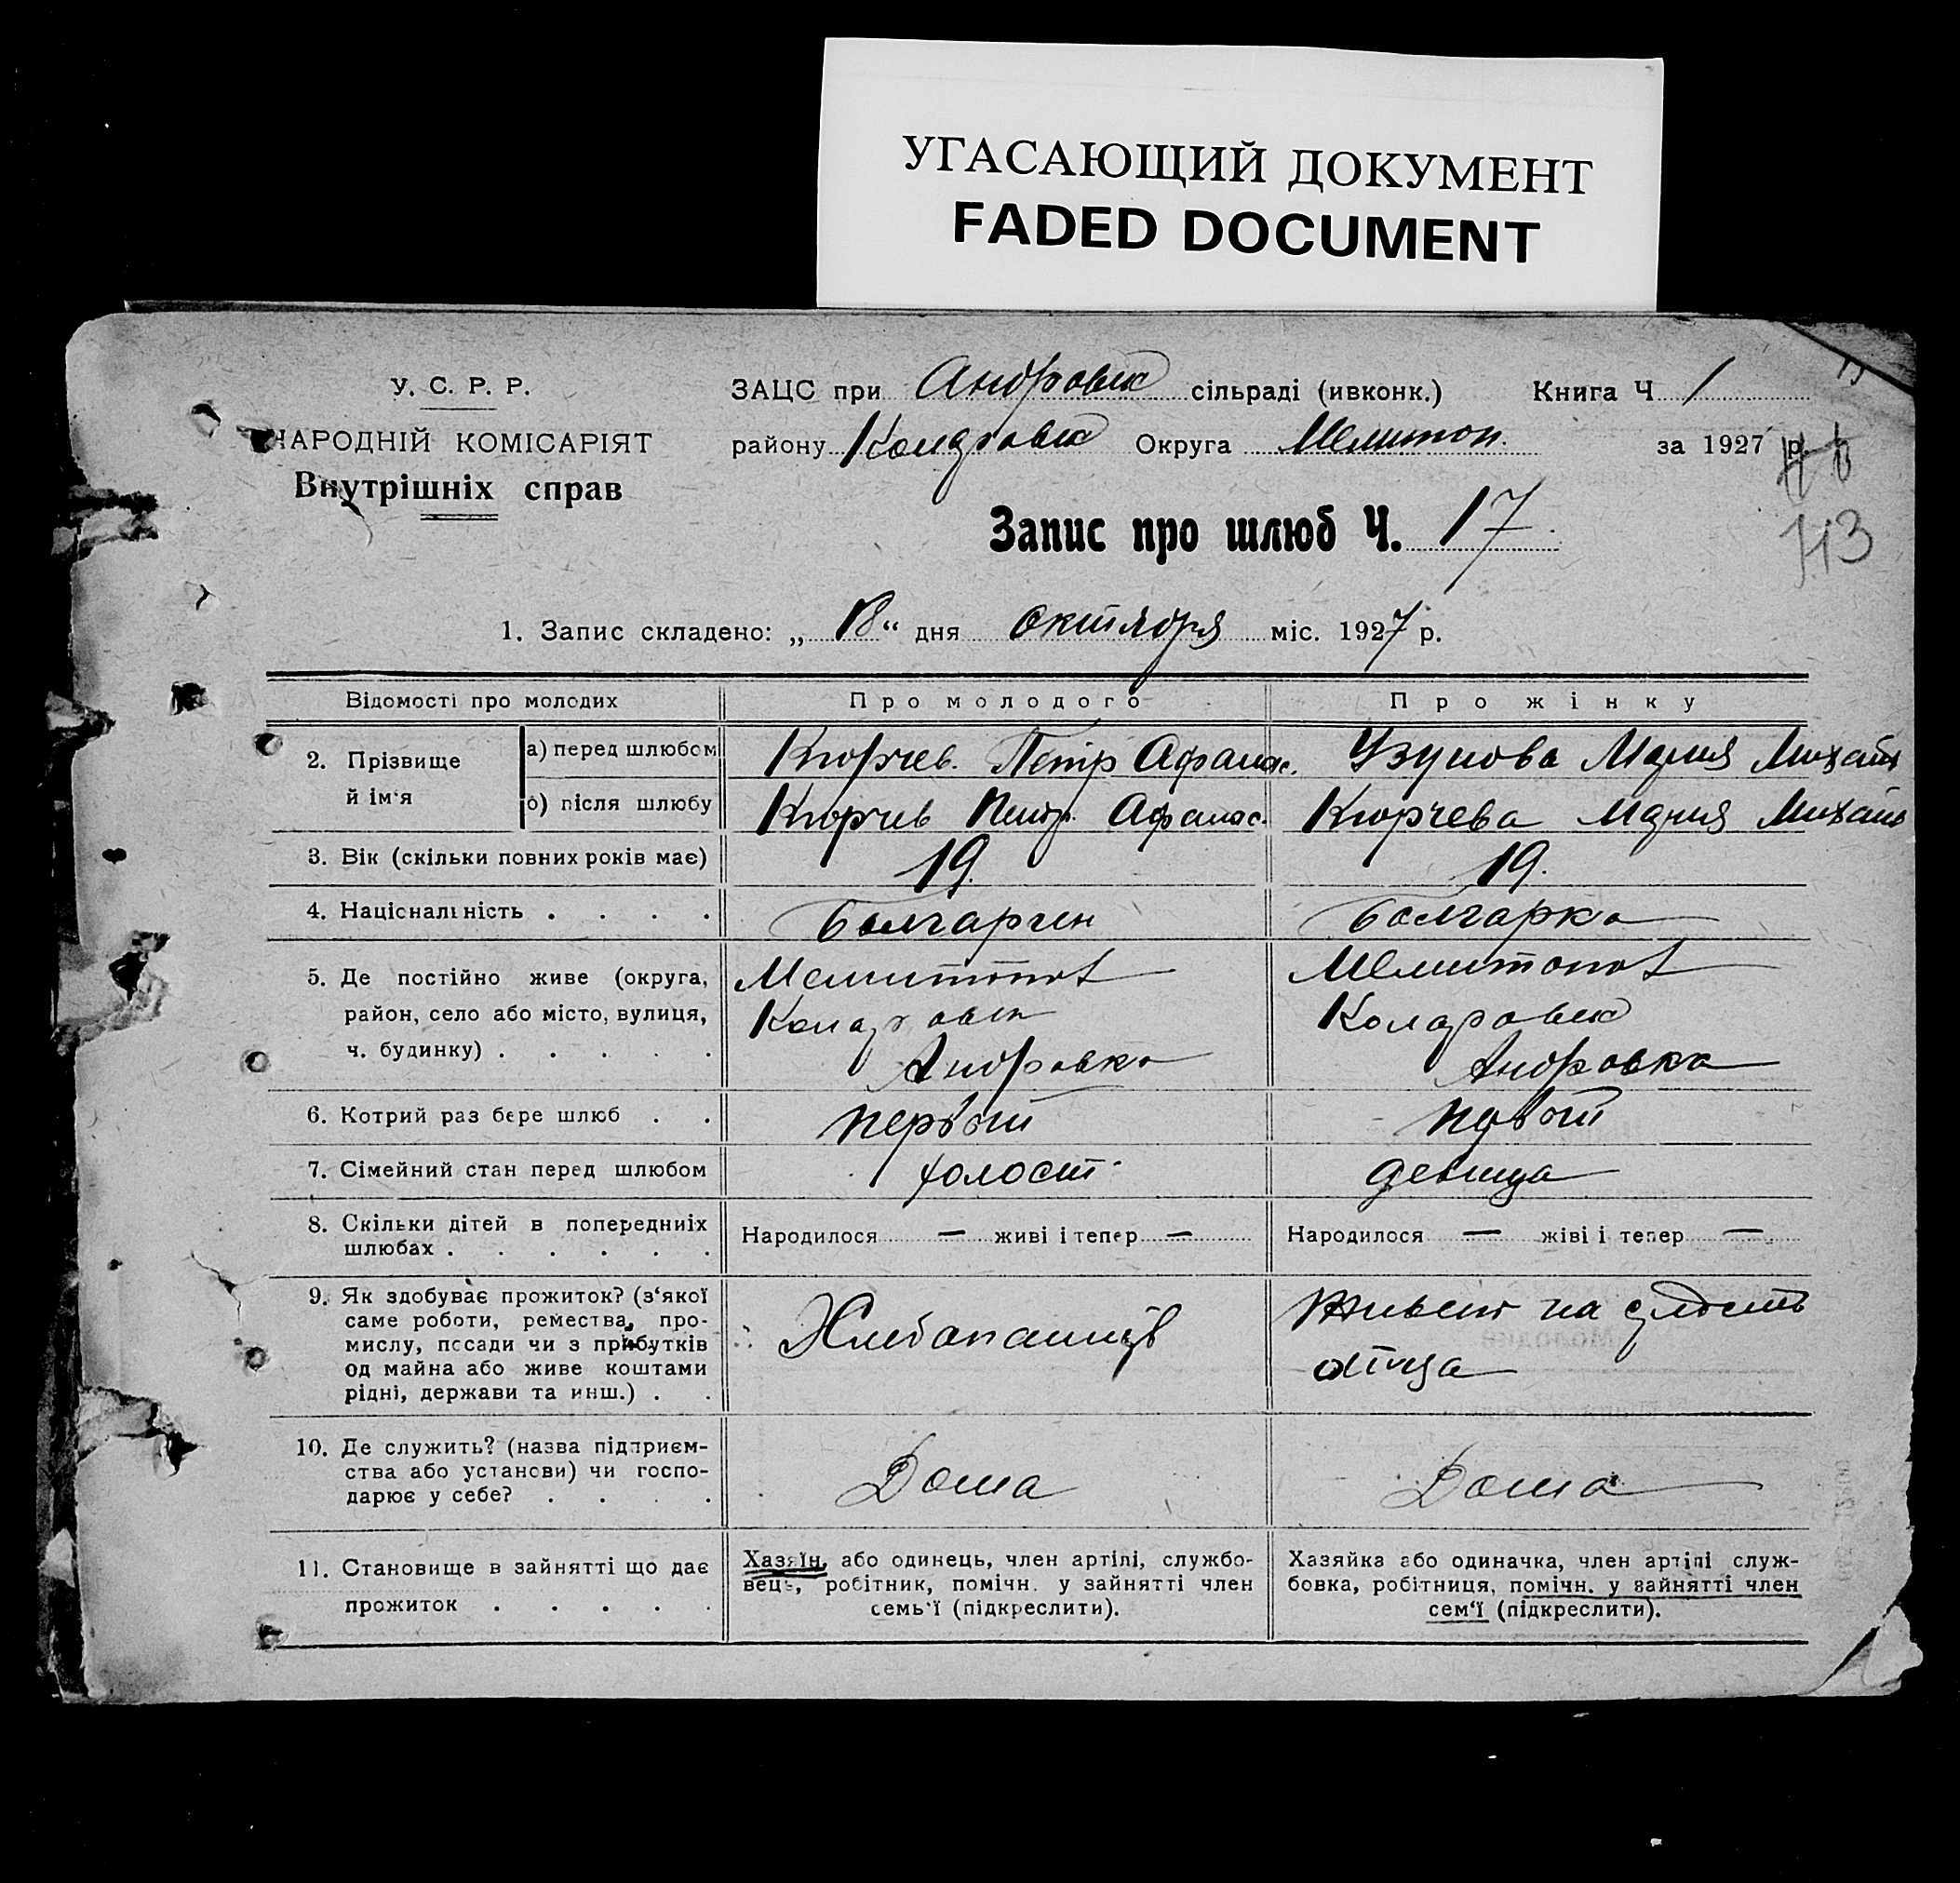 УГАСАЮЩИЙ ДОКУМЕНТ
FADED DOCUMENT
У. С. Р. Р.
НАРОДНІЙ КОМІСАРІЯТ
Внутрішніх справ
ЗАЦС при Андровск сільраді (ивконк.) Книга Ч 1
району Коларовск Округа Мелитоп. за 1927 р.
113
Запис про шлюб Ч. 17
1. Запис складено: „ 18 “ дня Октября міс. 1927 р.
Відомості про молодих
Про молодого
Про жінку
2. Прізвище й ім‘я
а) перед шлюбом
Кюрчев. Петр Афанас.
Узунова Мария Михайл
б) після шлюбу
Кюрчев Петр. Афанас.
Кюрчева Мария Михайл
3. Вік (скільки повних років має)
19.
19.
4. Національність . . . .
Болгарин
болгарка
5. Де постійно живе (округа,
район, село або місто, вулиця,
ч. будинку) . . . . .
Мелитопол
Коларовск
Андровка
Мелитопол
Коларовск
Андровка
6. Котрий раз бере шлюб . .
первый
7. Сімейний стан перед шлюбом
холост
девица
8. Скільки дітей в попередниіх
шлюбах . . . . . .
Народилося — живі і тепер —
Народилося — жіві і тепер —
9. Як здобуває прожиток? (з‘якої
саме роботи, ремества, про-
мислу, посади чи з прибутків
од майна або живе коштами
рідні, держави та инш.) . .
Хлебопашец
Живет на
отца
10. Де служить? (назва підприєм-
ства або установи) чи госпо-
дарює у себе? . . . .
Дома
Дома
11. Становище в зайнятті що дає
прожиток . . . . .
Хазяїн, або одинець, член артілі, службо-
вець, робітник, помічн. у зайнятті член
семь‘ї (підкреслити).
Хазяйка або одиначка, член артілі служ-
бовка, робітниця, помічн. у зайнятті член
сем‘ї (підкреслити).